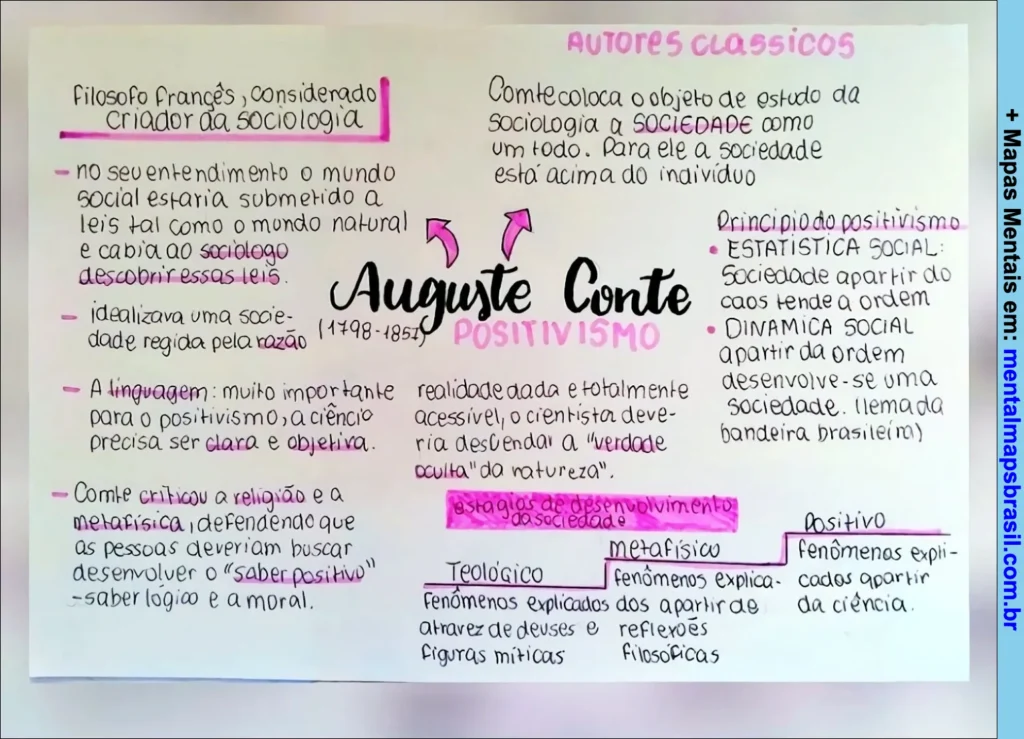 AUTORES CLASSICOS
filosofo françês, considerado
criador da sociologia
- no seu entendimento o mundo
social estaria submetido a
leis tal como o mundo natural
e cabia ao sociólogo
descobrir essas leis.
- idealizava uma socie-
dade regida pela razão
- A linguagem: muito importante
para o positivismo, a ciência
precisa ser clara e objetiva.
- Comte criticou a religião e a
metafísica, defendendo que
as pessoas deveriam buscar
desenvolver o "saber positivo"
-saber lógico e a moral.
Comte coloca o objeto de estudo da
sociologia a SOCIEDADE como
um todo. Para ele a sociedade
está acima do indivíduo
Auguste Conte
(1798-1857)
POSITIVISMO
Principio do positivismo
• ESTATÍSTICA SOCIAL:
Sociedade apartir do
caos tende a ordem
• DINAMICA SOCIAL
apartir da ordem
desenvolve-se uma
sociedade. (lema da
bandeira brasileira)
realidade dada e totalmente
acessível, o cientista deve-
ria desvendar a "verdade
oculta" da natureza".
estagios de desenvolvimento
da sociedade
Teológico
fenômenos explicados
atravez de deuses e
figuras míticas
metafísico
fenômenos explica-
dos apartir de
reflexoēs
filosóficas
Positivo
fenômenos expli-
cados apartir
da ciência.
+ Mapas Mentais em: mentalmapsbrasil.com.br